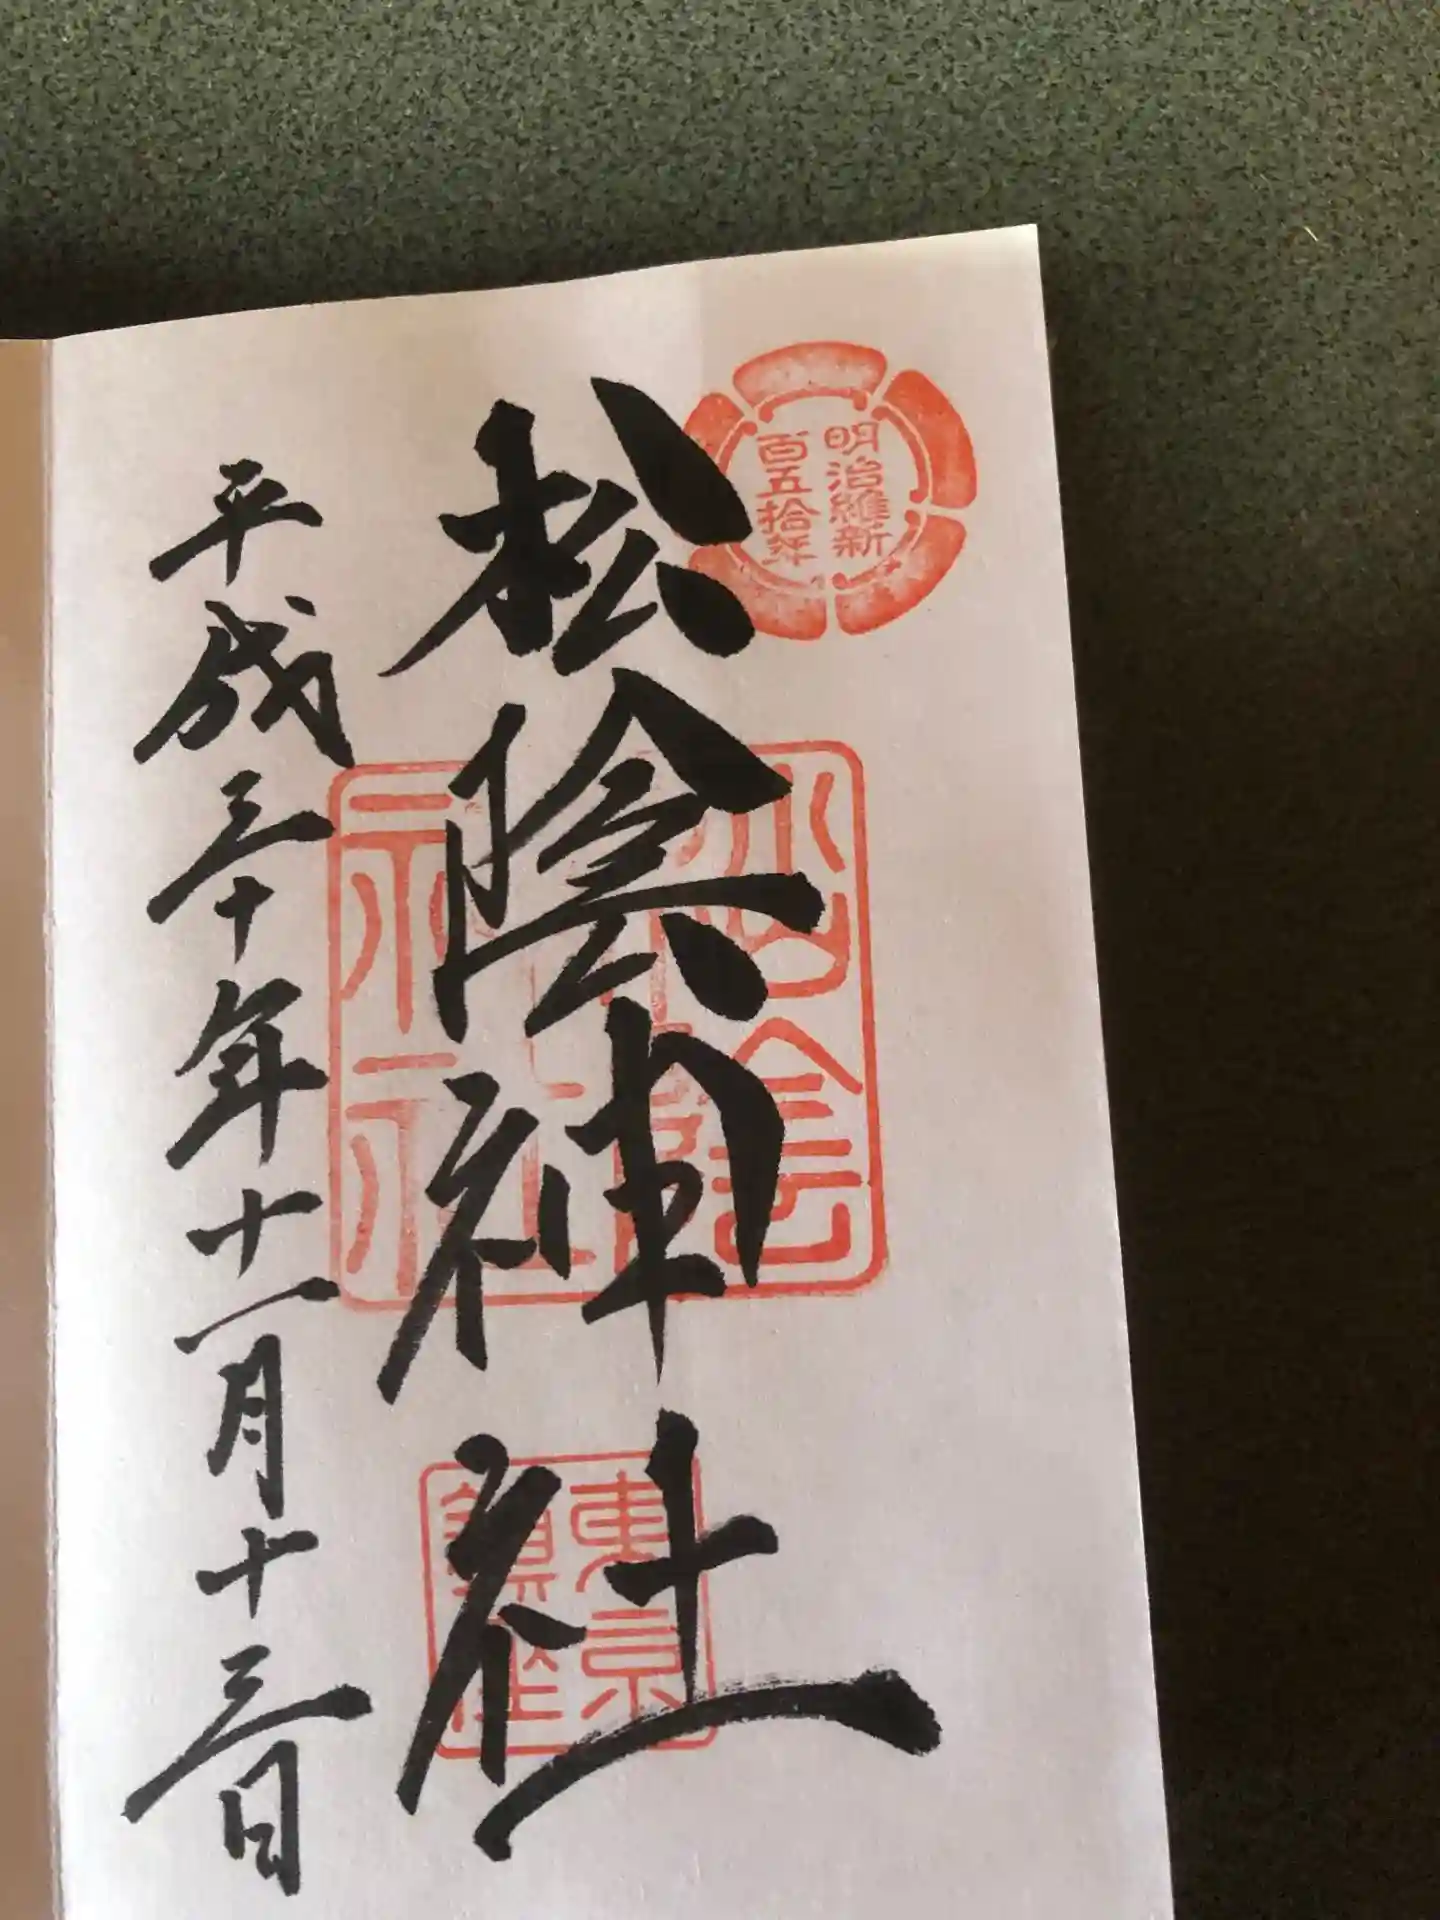 明治維新
百五拾年
松陰神社
松陰
神社
東京
鎮座
平成三十年十一月十三日